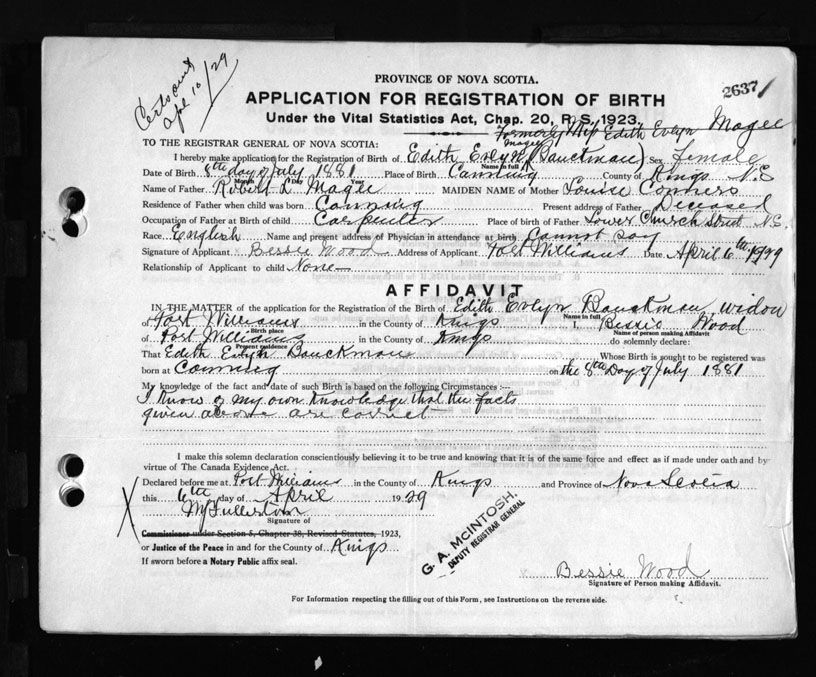 Certs sent
Apl 10/29
2637
PROVINCE OF NOVA SCOTIA.
APPLICATION FOR REGISTRATION OF BIRTH
Under the Vital Statistics Act, Chap. 20, R. S. 1923.
Formerly Edith Evlyn Magee
TO THE REGISTRAR GENERAL OF NOVA SCOTIA:
Magee
I hereby make application for the Registration of Birth of Edith Evlyn (Bauckman) Sex Female
Name in full
Date of Birth 8th day of July 1881 Place of Birth Canning County of Kings N.S
Month Day Year
Name of Father Robert L Magee MAIDEN NAME of Mother Louise Conners
Residence of Father when child was born Canning Present address of Father Deceased
Occupation of Father at Birth of child Carpenter Place of birth of Father Lower Church Street N.S.
Race English Name and present address of Physician in attendance at birth Cannot say
Signature of Applicant Bessie Wood Address of Applicant Port Williams Date April 6th 1929
Relationship of Applicant to child None
AFFIDAVIT
IN THE MATTER of the application for the Registration of the Birth of Edith Evlyn Bauckman, widow
Name in full
of Port Williams in the County of Kings I, Bessie Wood
Birth place Name of person making Affidavit
of Port Williams in the County of Kings do solemnly declare:
Present residence
That Edith Evlyn Bauckman Whose Birth is sought to be registered was
born at Canning on the 8th Day of July 1881
My knowledge of the fact and date of such Birth is based on the following Circumstances :—
I know of my own knowledge that the facts
given above are correct
I make this solemn declaration conscientiously believing it to be true and knowing that it is of the same force and effect as if made under oath and by
virtue of The Canada Evidence Act.
Declared before me at Port Williams in the County of Kings and Province of Nova Scotia
this 6th day of April 1929
Fullerton
Signature of
Commissioner under Section 5, Chapter 38, Revised Statutes, 1923,
or Justice of the Peace in and for the County of Kings
If sworn before a Notary Public affix seal.
G. A. McINTOSH.
DEPUTY REGISTRAR GENERAL
Bessie Wood
Signature of Person making Affidavit.
For Information respecting the filling out of this Form, see Instructions on the reverse side.